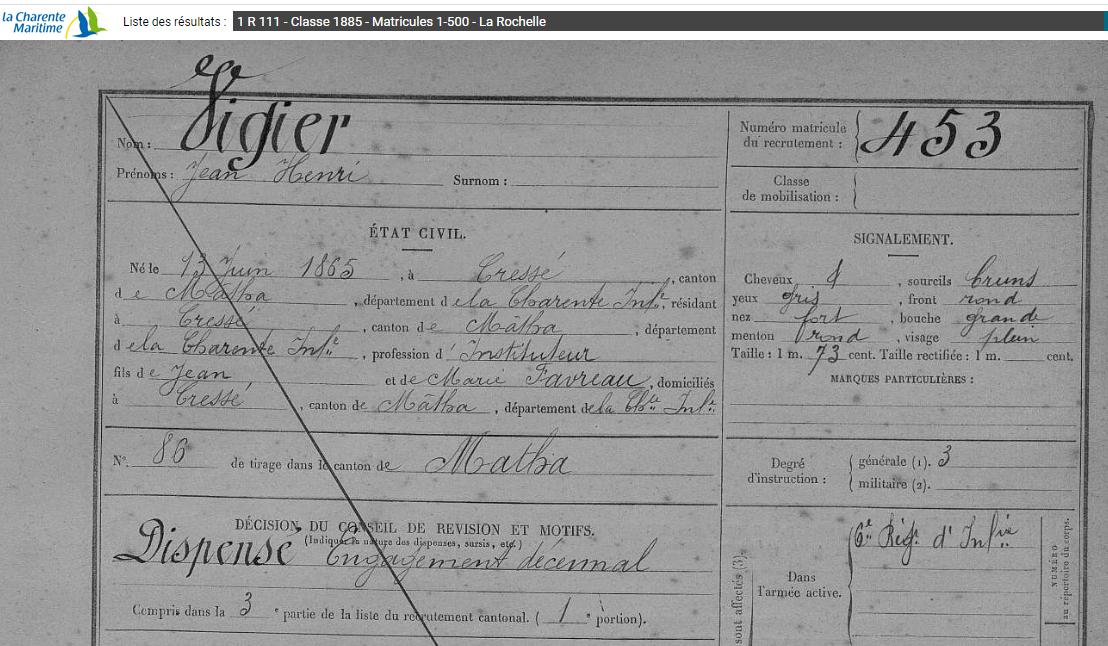 la Charente
Maritime
Liste des résultats : 1 R 111 - Classe 1885 - Matricules 1-500 - La Rochelle
Nom : Vigier
Prénoms : Jean Henri Surnom :
Numéro matricule
du recrutement : 453
Classe
de mobilisation :
ÉTAT CIVIL.
Né le 13 Juin 1865, à Cressé, canton
de Mâtha, département de la Charente Infre, résidant
à Cressé, canton de Mâtha, département
de la Charente Infre, profession d'Instituteur
fils de Jean et de Marie Favreau, domiciliés
à Cressé, canton de Mâtha, département de la Chte Infre
N° 86 de tirage dans le canton de Matha
SIGNALEMENT.
Cheveux, sourcils bruns
yeux gris, front rond
nez fort, bouche grande
menton rond, visage plein
Taille : 1 m. 73 cent. Taille rectifiée : 1 m. cent.
MARQUES PARTICULIÈRES :
Degré
d'instruction :
générale (1). 3
militaire (2).
DÉCISION DU CONSEIL DE REVISION ET MOTIFS.
(Indiquer la nature des dispenses, sursis, etc.)
Dispensé Engagement décennal
Compris dans la 3e partie de la liste du recrutement cantonal. (1 portion).
sont affectés (3).
Dans
l'armée active.
6e Régt d'Infie
NUMÉRO
au répertoire du corps.